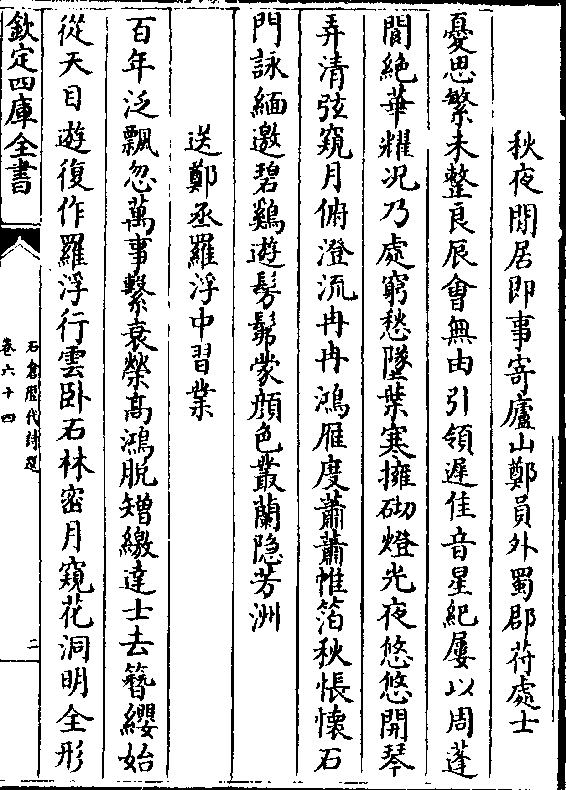 秋夜閒居即事寄廬山鄭員外蜀郡苻處士
憂思繁未整良辰會無由引領遲佳音星紀屢以周蓬
閣絶華耀况乃處窮愁墜葉寒擁砌燈光夜悠悠開琴
弄清弦窺月俯澄流冉冉鴻雁度蕭蕭帷箔秋悵懷石
門詠緬邀碧鷄遊髣髴蒙顔色叢蘭隐芳洲
送鄭丞羅浮中習業
百年泛飄忽萬事繫衰榮髙鴻脱矰繳達士去簪纓始
從天目遊復作羅浮行雲卧石林密月窺花洞明全形
欽定四庫全書
石倉歴代詩選
卷六十四
二